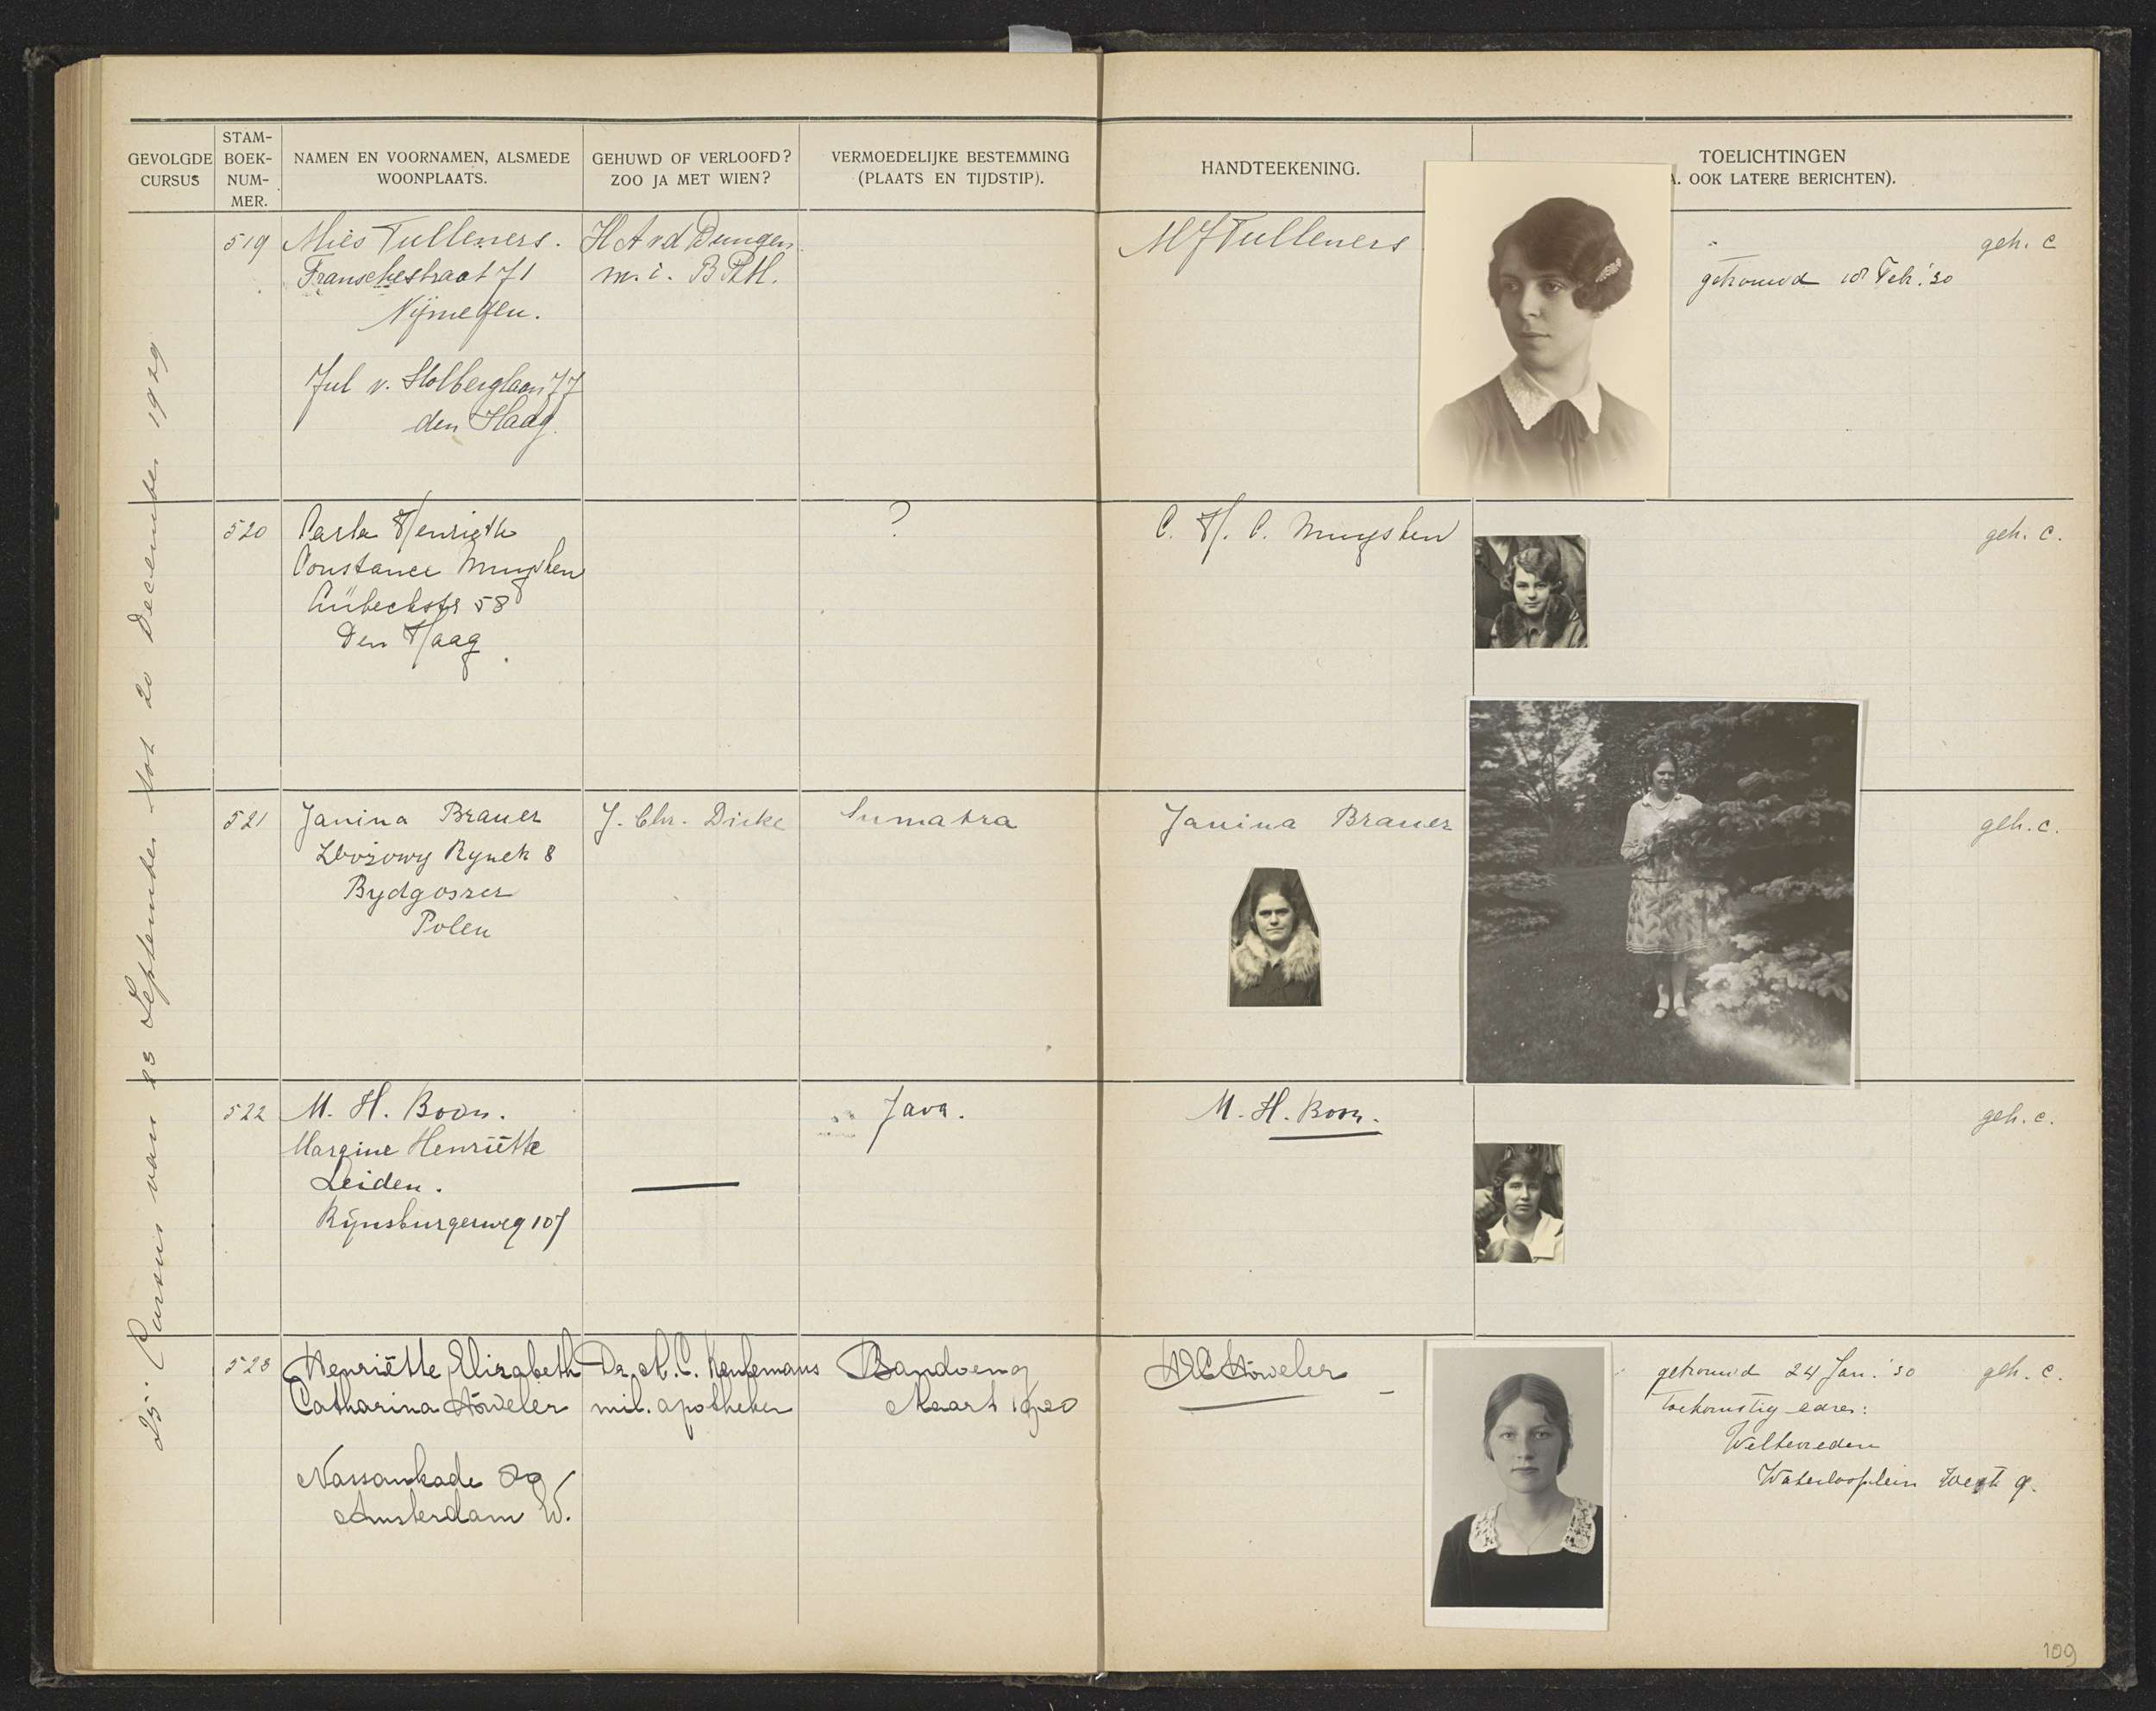 GEVOLGDE CURSUS
STAM-BOEK-NUM-MER.
NAMEN EN VOORNAMEN, ALSMEDE WOONPLAATS.
GEHUWD OF VERLOOFD? ZOO JA MET WIEN?
VERMOEDELIJKE BESTEMMING (PLAATS EN TIJDSTIP).
HANDTEEKENING.
TOELICHTINGEN
A. OOK LATERE BERICHTEN).
25e Cursus van 23 September tot 20 December 1929
519 Mies Tulleners. H A v d Dungen MJTulleners geh. c
Franschestraat 71 m. i. getrouwd 18 Feb. '30
Nijmegen.
Jul v. Stolberglaan 77
den Haag.
520 Carla Henriette ? C. H. C. Muysken geh. c.
Constance Muysken
58
Den Haag
521 Janina Brauer J. Chr. Dicke Sumatra Janina Brauer geh. c.
Zbożowy Rynek 8
Bydgoszcz
Polen
522 M. H. Boon. Java. M. H. Boon. geh. c.
Margine Henriëtte
Leiden.
Rijnsburgerweg 107
523 Henriëtte Elizabeth Dr. A. C. Bandoeng HECHöweler getrouwd 24 Jan. '30 geh. c.
Catharina Höweler mil. apotheker Maart 1930 Toekomstig adres:
Weltevreden
Nassaukade Waterlooplein West 9.
Amsterdam W.
109